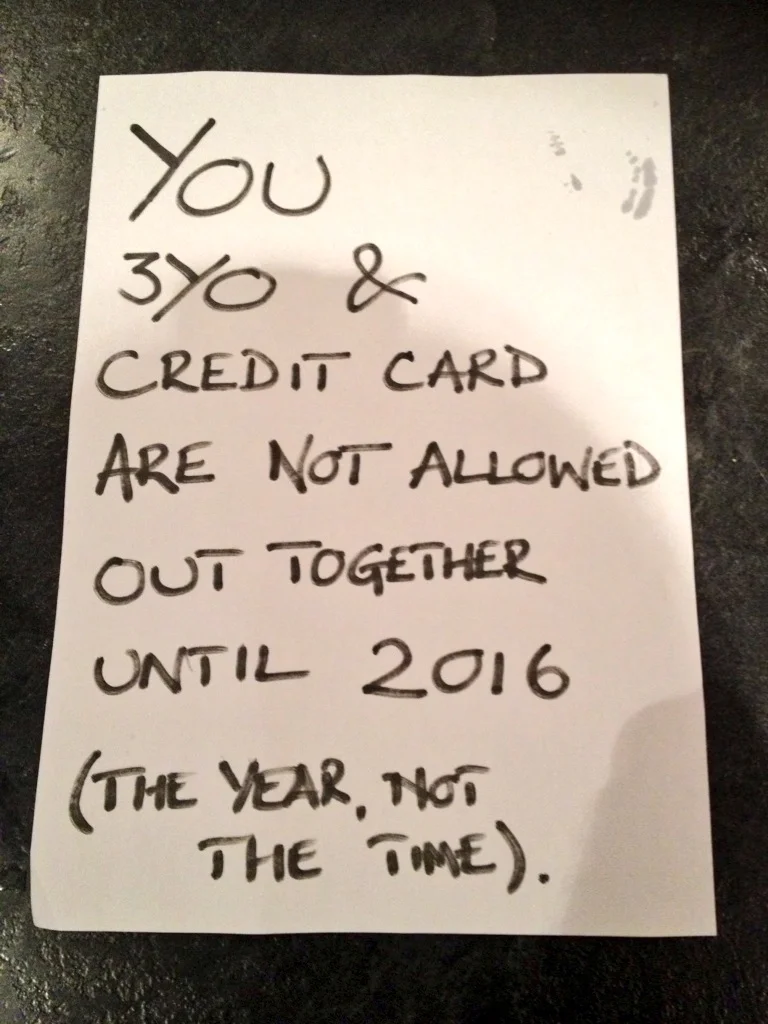 YOU
3YO &
CREDIT CARD
ARE NOT ALLOWED
OUT TOGETHER
UNTIL 2016
(THE YEAR, NOT
THE TIME).